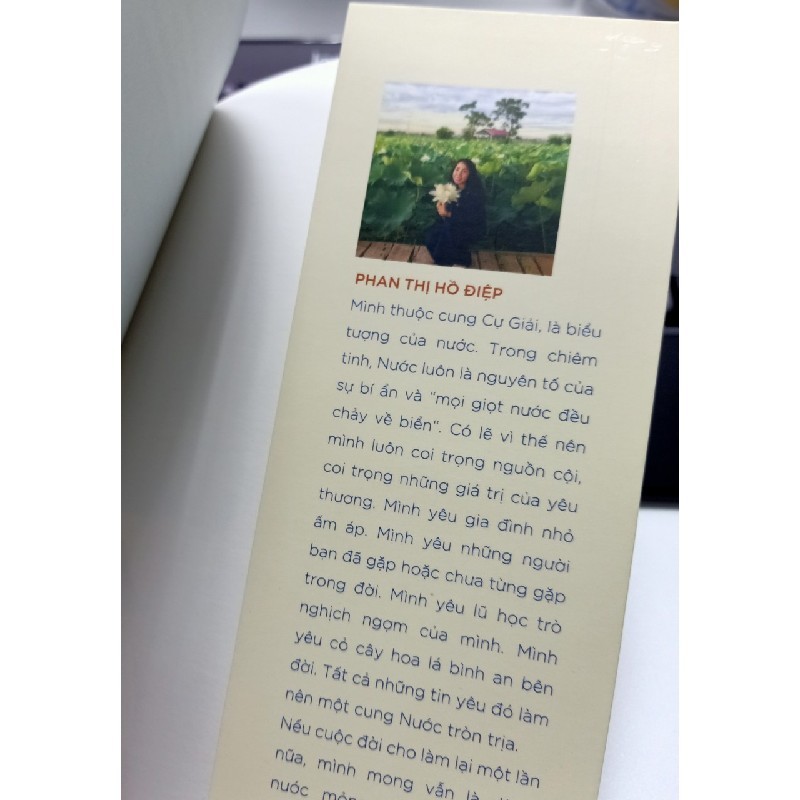 PHAN THỊ HỒ ĐIỆP
Mình thuộc cung Cự Giải, là biểu
tượng của nước. Trong chiêm
tinh, Nước luôn là nguyên tố của
sự bí ẩn và "mọi giọt nước đều
chảy về biển". Có lẽ vì thế nên
mình luôn coi trọng nguồn cội,
coi trọng những giá trị của yêu
thương. Mình yêu gia đình nhỏ
ấm áp. Mình yêu những người
bạn đã gặp hoặc chưa từng gặp
trong đời. Mình yêu lũ học trò
nghịch ngợm của mình. Mình
yêu cỏ cây hoa lá bình an bên
đời. Tất cả những tin yêu đó làm
nên một cung Nước tròn trịa.
Nếu cuộc đời cho làm lại một lần
nữa, mình mong vẫn là
nước